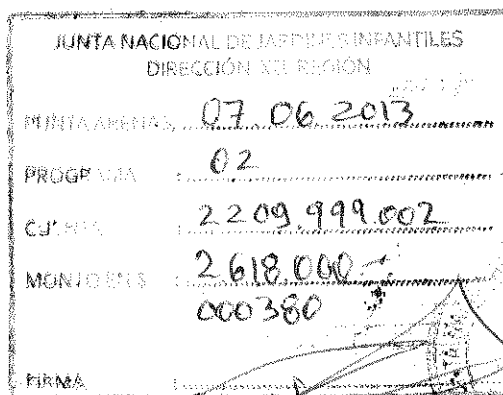 JUNTA NACIONAL DE JARDINES INFANTILES
DIRECCIÓN XII REGIÓN
PUNTA ARENAS, 07.06.2013
PROGRAMA : 02
CUENTA : 2209.999.002
MONTO EN $ : 2.618.000.-
000380
FIRMA